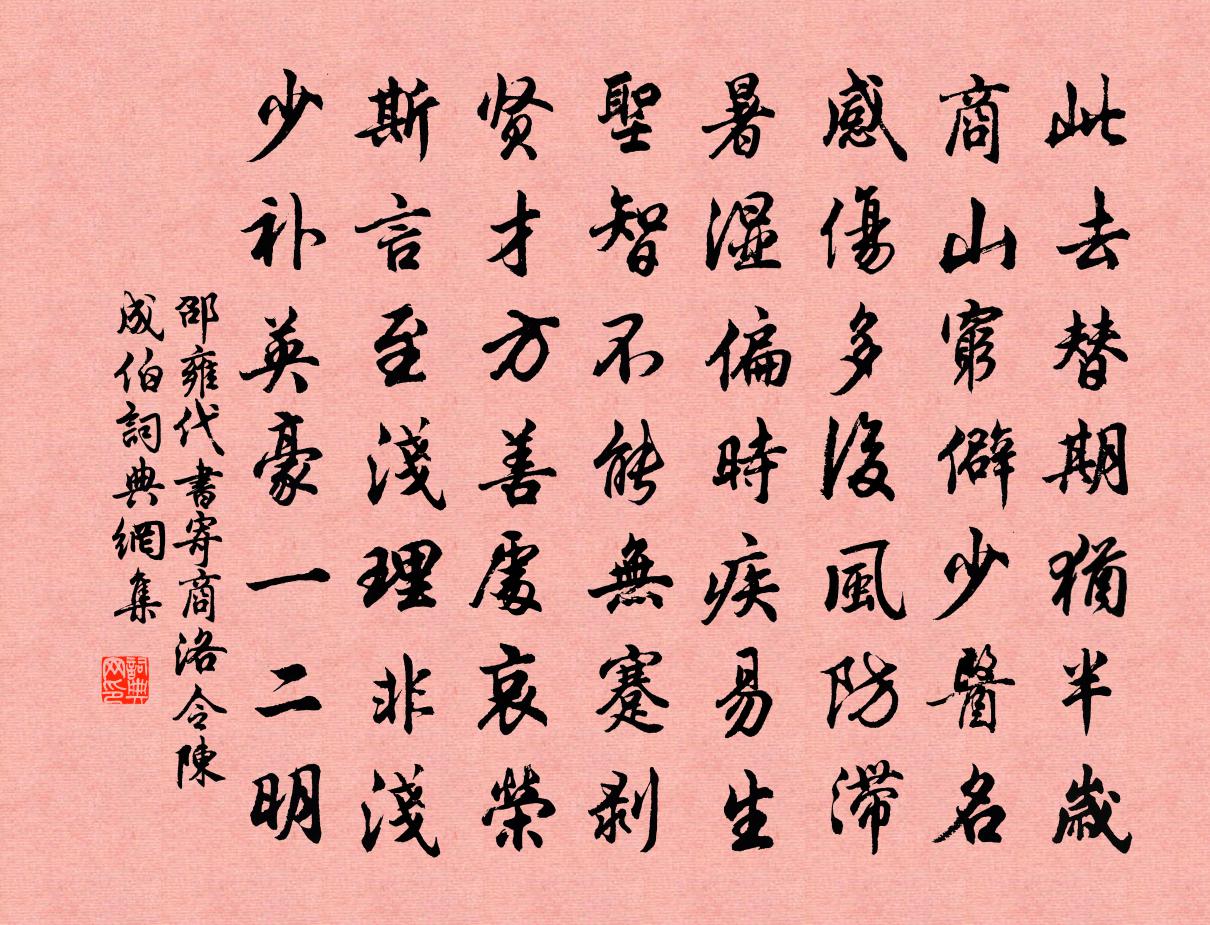 此去替期犹半歳
商山窮僻少醫名
感傷多後風防滯
暑濕偏時疾易生
聖智不能無蹇剥
贤才方善處哀榮
斯言至淺理非淺
少补英豪一二明
邵雍代書寄商洛令陳
成伯詞典網集
詞典
网印